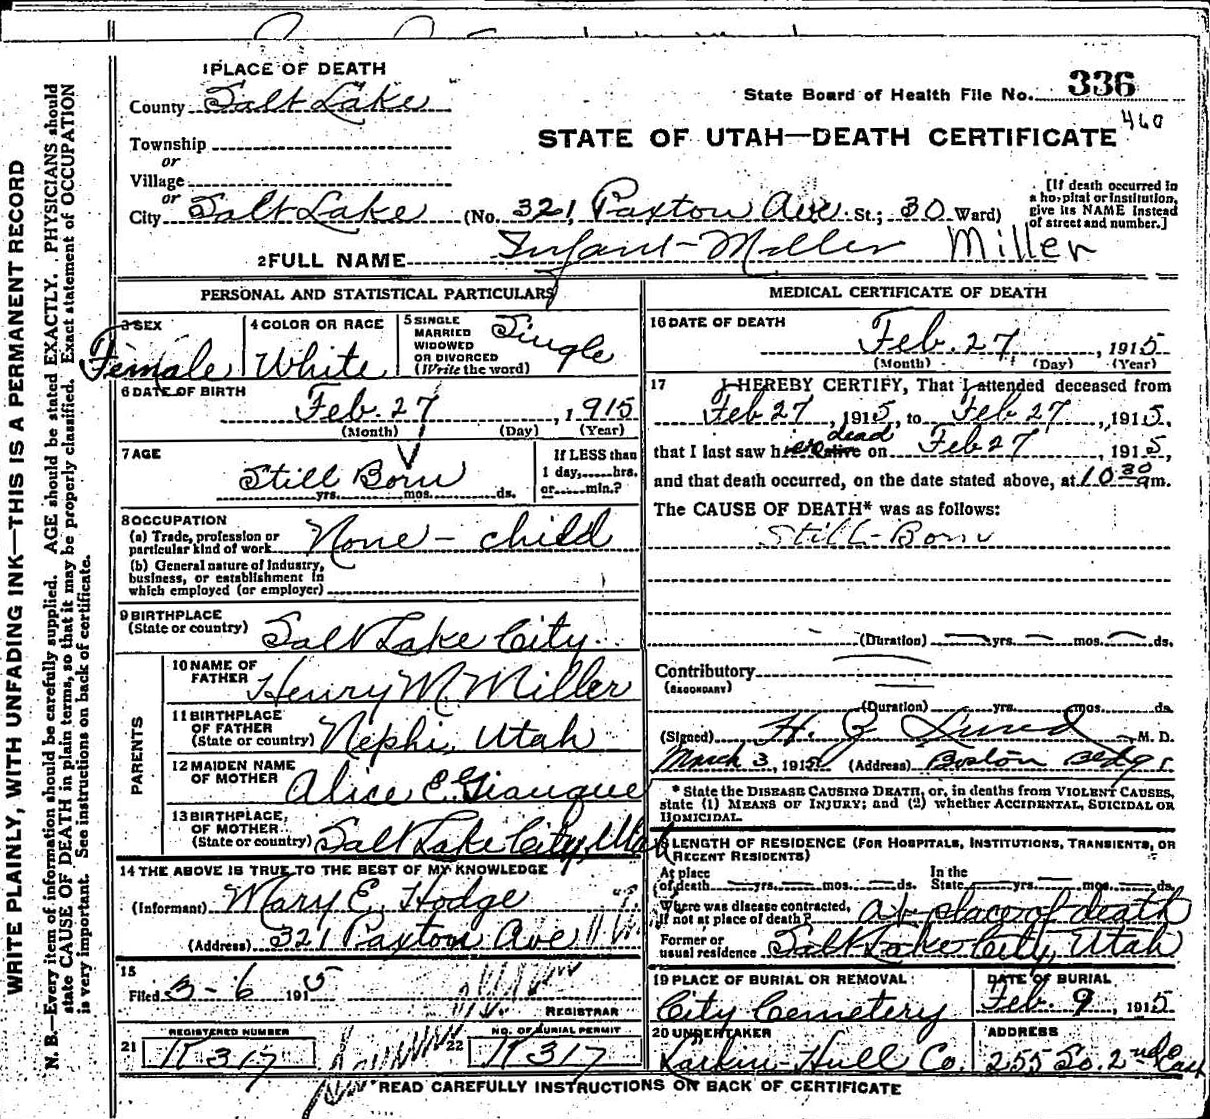 1 PLACE OF DEATH
County Salt Lake
State Board of Health File No. 336
460
STATE OF UTAH—DEATH CERTIFICATE
Township
or
Village
or
City Salt Lake (No. 321 Paxton Ave. St.; 30 Ward)
[If death occurred in a hospital or institution, give its NAME instead of street and number.]
2 FULL NAME Infant Miller Miller
PERSONAL AND STATISTICAL PARTICULARS
3 SEX Female
4 COLOR OR RACE White
5 SINGLE MARRIED WIDOWED OR DIVORCED (Write the word) Single
6 DATE OF BIRTH Feb. 27, 1915
(Month) (Day) (Year)
7 AGE Still Born
yrs. mos. ds.
If LESS than 1 day, hrs. or min.?
8 OCCUPATION
(a) Trade, profession or particular kind of work None - child
(b) General nature of Industry, business, or establishment in which employed (or employer)
9 BIRTHPLACE (State or country) Salt Lake City.
PARENTS
10 NAME OF FATHER Henry M. Miller
11 BIRTHPLACE OF FATHER (State or country) Nephi, Utah
12 MAIDEN NAME OF MOTHER Alice E. Giauque
13 BIRTHPLACE OF MOTHER (State or country) Salt Lake City, Utah
14 THE ABOVE IS TRUE TO THE BEST OF MY KNOWLEDGE
(Informant) Mary E. Hodge
(Address) 321 Paxton Ave
15
Filed 3-6 1915
REGISTRAR
21 REGISTERED NUMBER K317
22 NO. OF BURIAL PERMIT K317
MEDICAL CERTIFICATE OF DEATH
16 DATE OF DEATH Feb. 27, 1915
(Month) (Day) (Year)
17 I HEREBY CERTIFY, That I attended deceased from
Feb 27, 1915, to Feb 27, 1915,
that I last saw her dead alive on Feb 27, 1915,
and that death occurred, on the date stated above, at 10 30 am.
The CAUSE OF DEATH* was as follows:
Still-Born
(Duration) yrs. mos. ds.
Contributory
(SECONDARY)
(Duration) yrs. mos. ds.
(Signed) H. Z. Lund M. D.
March 3, 1915 (Address) Boston Bldg
* State the DISEASE CAUSING DEATH, or, in deaths from VIOLENT CAUSES, state (1) MEANS OF INJURY; and (2) whether ACCIDENTAL, SUICIDAL OR HOMICIDAL.
LENGTH OF RESIDENCE (FOR HOSPITALS, INSTITUTIONS, TRANSIENTS, OR RECENT RESIDENTS)
At place of death yrs. mos. ds. In the State yrs. mos. ds.
Where was disease contracted, if not at place of death? at place of death
Former or usual residence Salt Lake City, Utah
19 PLACE OF BURIAL OR REMOVAL City Cemetery
DATE OF BURIAL Feb. 9, 1915
20 UNDERTAKER Larkin-Hull Co.
ADDRESS 255 So. 2nd East
READ CAREFULLY INSTRUCTIONS ON BACK OF CERTIFICATE
WRITE PLAINLY, WITH UNFADING INK—THIS IS A PERMANENT RECORD
N. B.—Every item of information should be carefully supplied. AGE should be stated EXACTLY. PHYSICIANS should
state CAUSE OF DEATH in plain terms, so that it may be properly classified. Exact statement of OCCUPATION
is very important. See instructions on back of certificate.